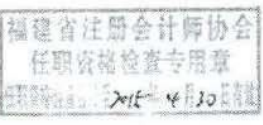 福建省注册会计师协会
任职资格检查专用章
2015 4月30日